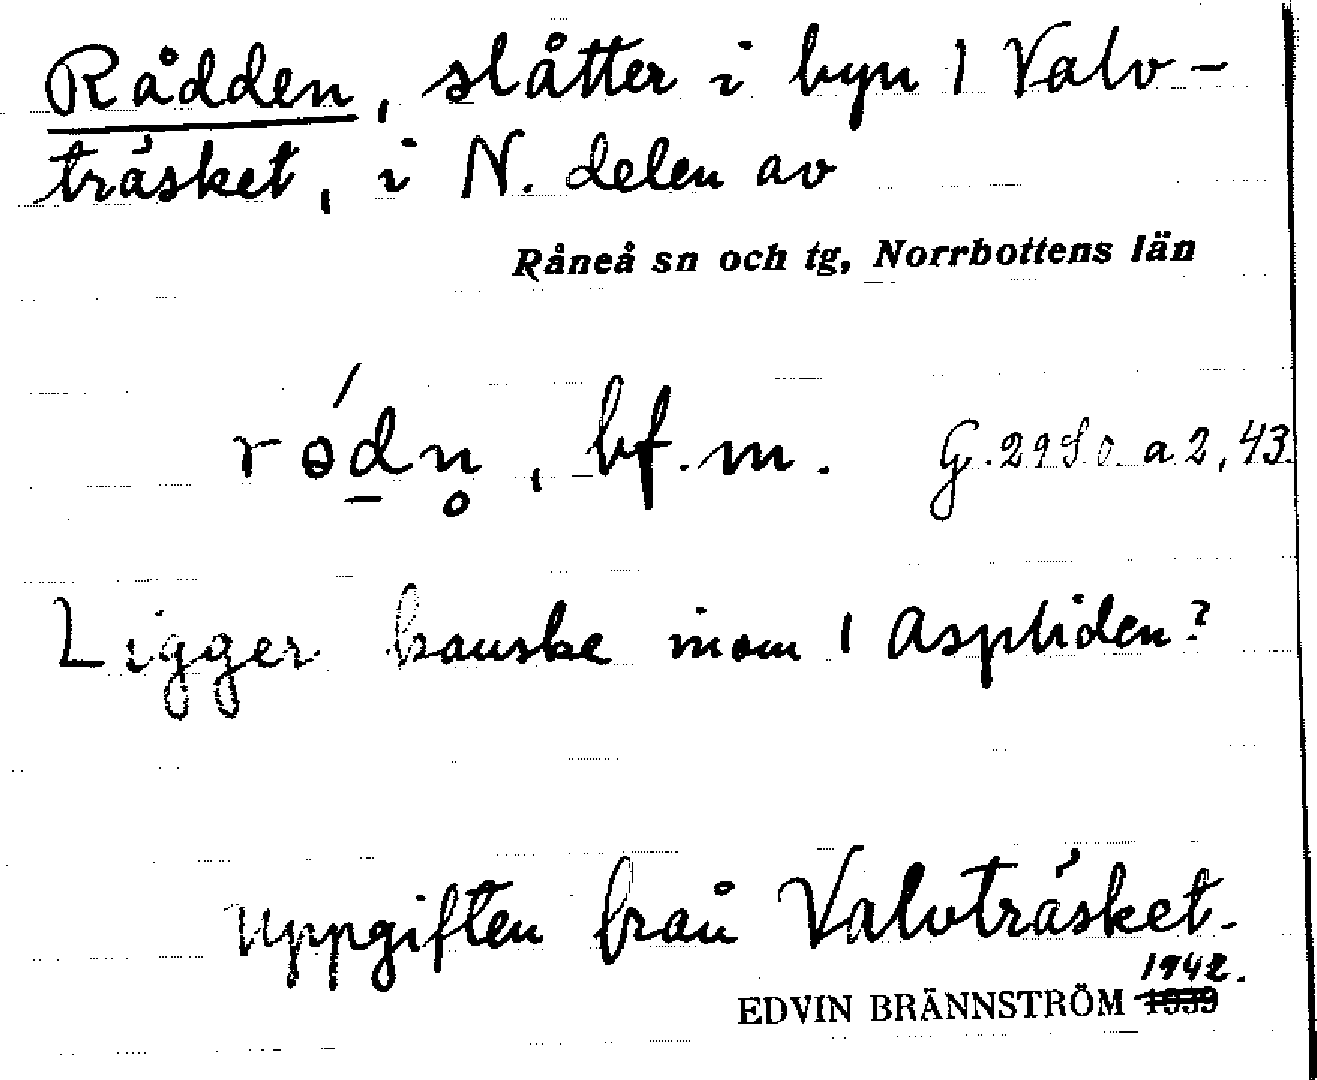 Rådden, slåtter i byn 1 Valv-
träsket, i N. delen av
Råneå sn och tg, Norrbottens län
rǿd̲n̥, bf. m. G. 2980 a 2, 43.
Ligger kanske inom 1 Aspliden?
Uppgiften från Valvträsket.
1942.
EDVIN BRÄNNSTRÖM 1939